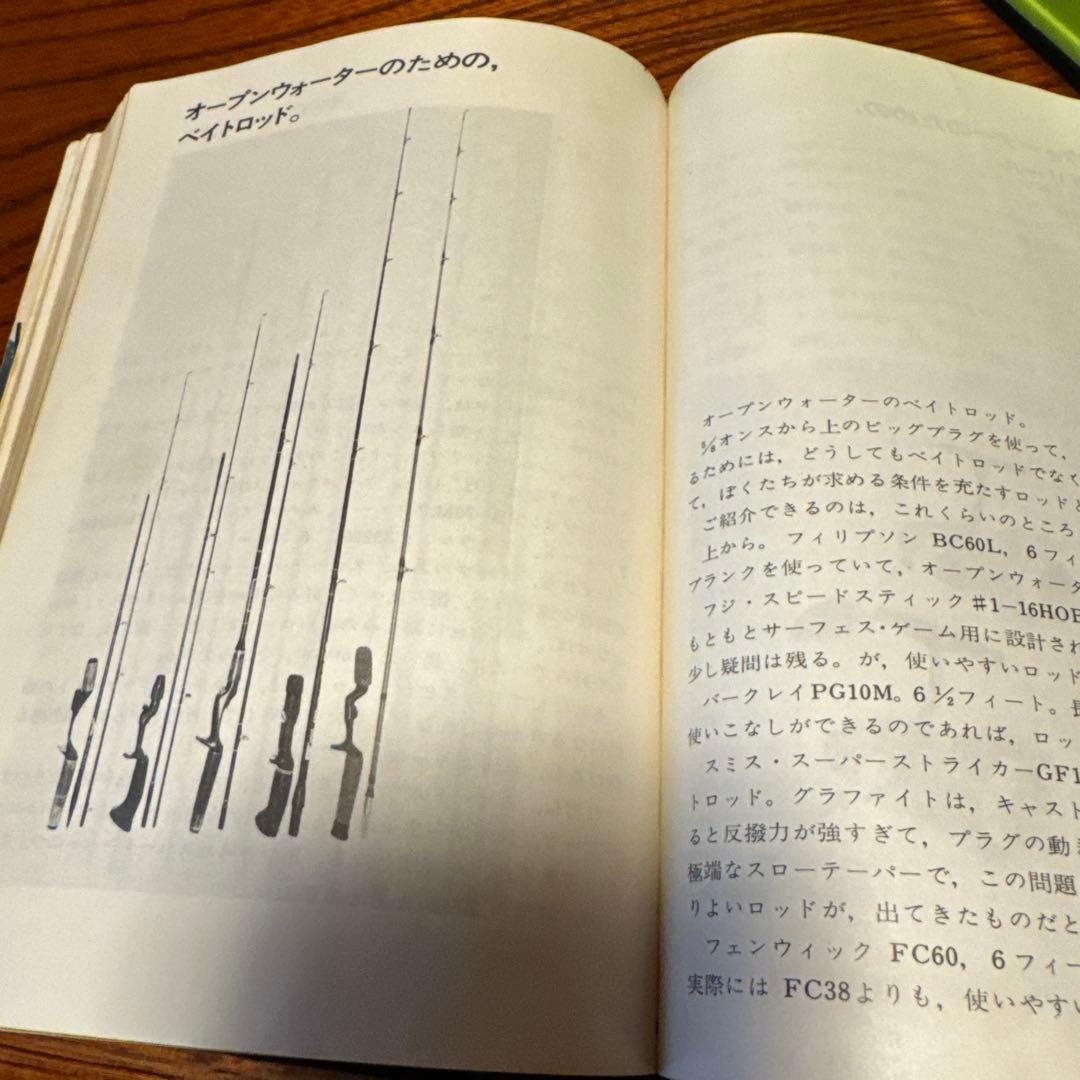 オープンウォーターのための,
ベイトロッド。
オープンウォーターのベイトロッド。
⅝オンスから上のビッグプラグを使って,
るためには, どうしてもベイトロッドでなく
て, ぼくたちが求める条件を充たすロッドと
ご紹介できるのは, これくらいのところ
上から。フィリプソン BC60L, 6フィ
ブランクを使っていて, オープンウォータ
フジ・スピードスティック #1-16HO
もともとサーフェス・ゲーム用に設計され
少し疑問は残る。が, 使いやすいロッド
バークレイPG10M。6 ½フィート。長
使いこなしができるのであれば, ロッ
スミス・スーパーストライカーGF1
トロッド。グラファイトは, キャスト
ると反撥力が強すぎて, プラグの動
極端なスローテーパーで, この問題
りよいロッドが, 出てきたものだと
フェンウィック FC60, 6フィー
実際には FC38よりも, 使いやすい